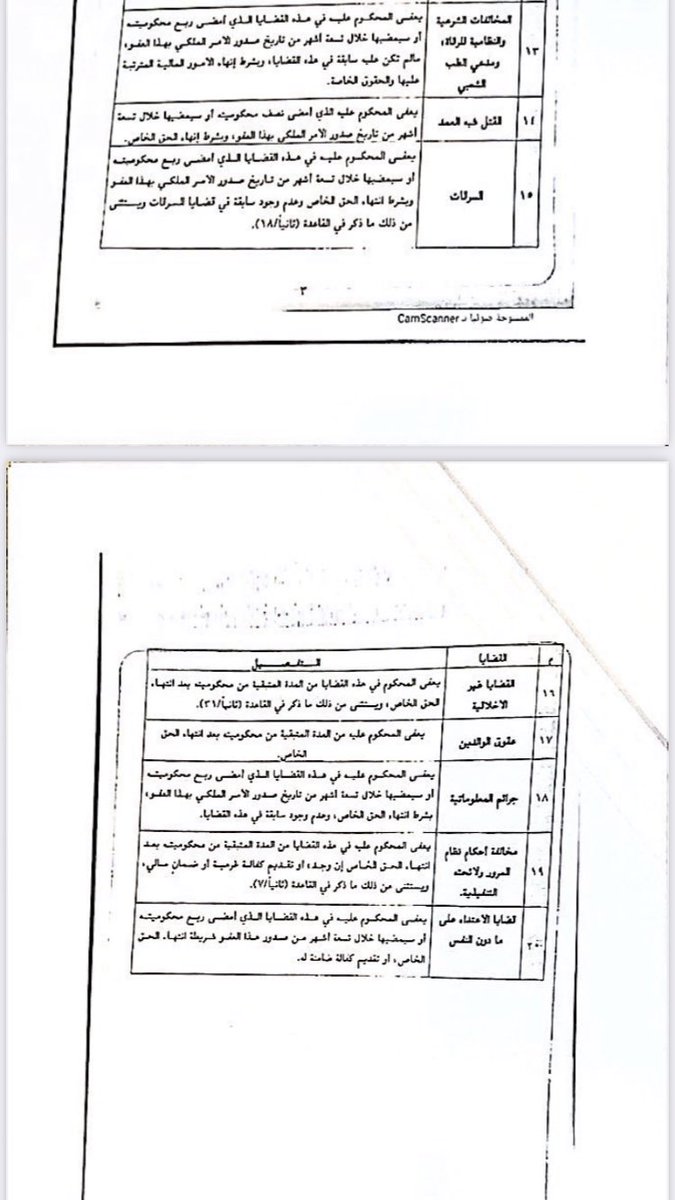 المخالفات الشرعية
والنظامية للرقاة،
ومدعي الطب
الشعبي
١٣
يعفى المحكوم عليه في هذه القضايا الذي أمضى ربع محكوميته
أو سيمضيها خلال تسعة أشهر من تاريخ صدور الأمر الملكي بهذا العفو،
مالم تكن عليه سابقة في هذه القضايا، وبشرط إنهاء الأمور المالية المترتبة
عليها والحقوق الخاصة.
١٤
القتل شبه العمد
يعفى المحكوم عليه الذي أمضى نصف محكوميته أو سيمضيها خلال تسعة
أشهر من تاريخ صدور الأمر الملكي بهذا العفو، وبشرط إنهاء الحق الخاص.
١٥
السرقات
يعفى المحكوم عليه في هذه القضايا الذي أمضى ربع محكوميته
أو سيمضيها خلال تسعة أشهر من تاريخ صدور الأمر الملكي بهذا العفو
وبشرط انتهاء الحق الخاص وعدم وجود سابقة في قضايا السرقات ويستثنى
من ذلك ما ذكر في القاعدة (ثانياً/١٨).
٣
الممسوحة ضوئيا بـ CamScanner
م
القضايا
التفصيل
١٦
القضايا غير
الأخلاقية
يعفى المحكوم في هذه القضايا من المدة المتبقية من محكوميته بعد انتهاء
الحق الخاص، ويستثنى من ذلك ما ذكر في القاعدة (ثانياً/٣١).
١٧
عقوق الوالدين
يعفى المحكوم عليه من المدة المتبقية من محكوميته بعد انتهاء الحق
الخاص.
١٨
جرائم المعلوماتية
يعفى المحكوم عليه في هذه القضايا الذي أمضى ربع محكوميته
أو سيمضيها خلال تسعة أشهر من تاريخ صدور الأمر الملكي بهذا العفو،
بشرط انتهاء الحق الخاص، وعدم وجود سابقة في هذه القضايا.
١٩
مخالفة أحكام نظام
المرور ولائحته
التنفيذية.
يعفى المحكوم عليه في هذه القضايا من المدة المتبقية من محكوميته بعد
انتهاء الحق الخاص إن وجد، أو تقديم كفالة غرمية أو ضمان مالي،
ويستثنى من ذلك ما ذكر في القاعدة (ثانياً/٧).
٢٠
قضايا الاعتداء على
ما دون النفس
يعفى المحكوم عليه في هذه القضايا الذي أمضى ربع محكوميته
أو سيمضيها خلال تسعة أشهر من صدور هذا العفو شريطة انتهاء الحق
الخاص، أو تقديم كفالة ضامنة له.